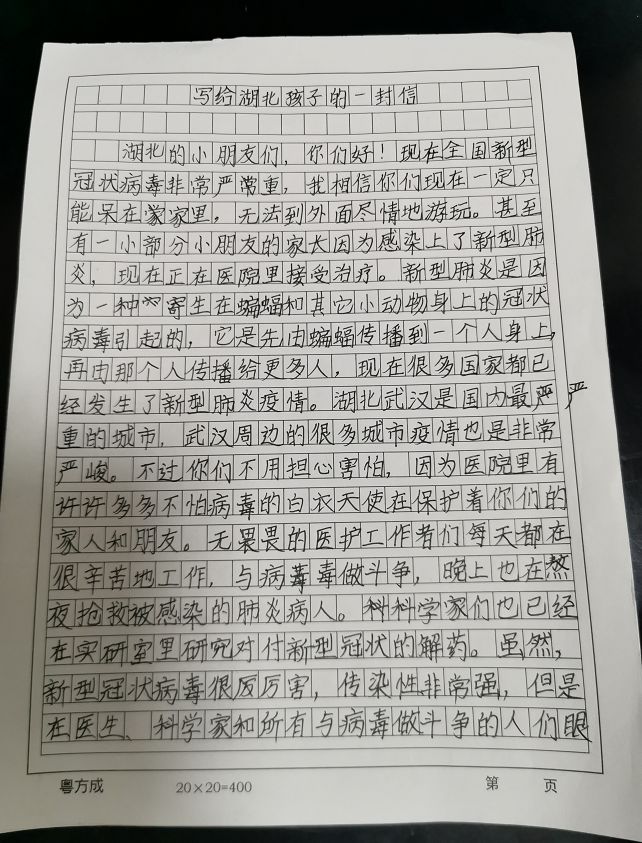 写给湖北孩子的一封信
湖北的小朋友们，你们好！现在全国新型
冠状病毒非常严常重，我相信你们现在一定只
能呆在蒙家里，无法到外面尽情地游玩。甚至
有一小部分小朋友的家长因为感染上了新型肺
炎，现在正在医院里接受治疗。新型肺炎是因
为一种寄生在蝙蝠和其它小动物身上的冠状
病毒引起的，它是先由蝙蝠传播到一个人身上，
再由那个人传播给更多人，现在很多国家都已
经发生了新型肺炎疫情。湖北武汉是国内最严严
重的城市，武汉周边的很多城市疫情也是非常
严峻。不过你们不用担心害怕，因为医院里有
许许多多不怕病毒的白衣天使在保护着你们的
家人和朋友。无畏的医护工作者们每天都在
很辛苦地工作，与病毒做斗争，晚上也在熬
夜抢救被感染的肺炎病人。科科学家们也已经
在实研室里研究对付新型冠状的解药。虽然，
新型冠状病毒很厉害，传染性非常强，但是
在医生、科学家和所有与病毒做斗争的人们眼
粤方成 20×20=400 第 页